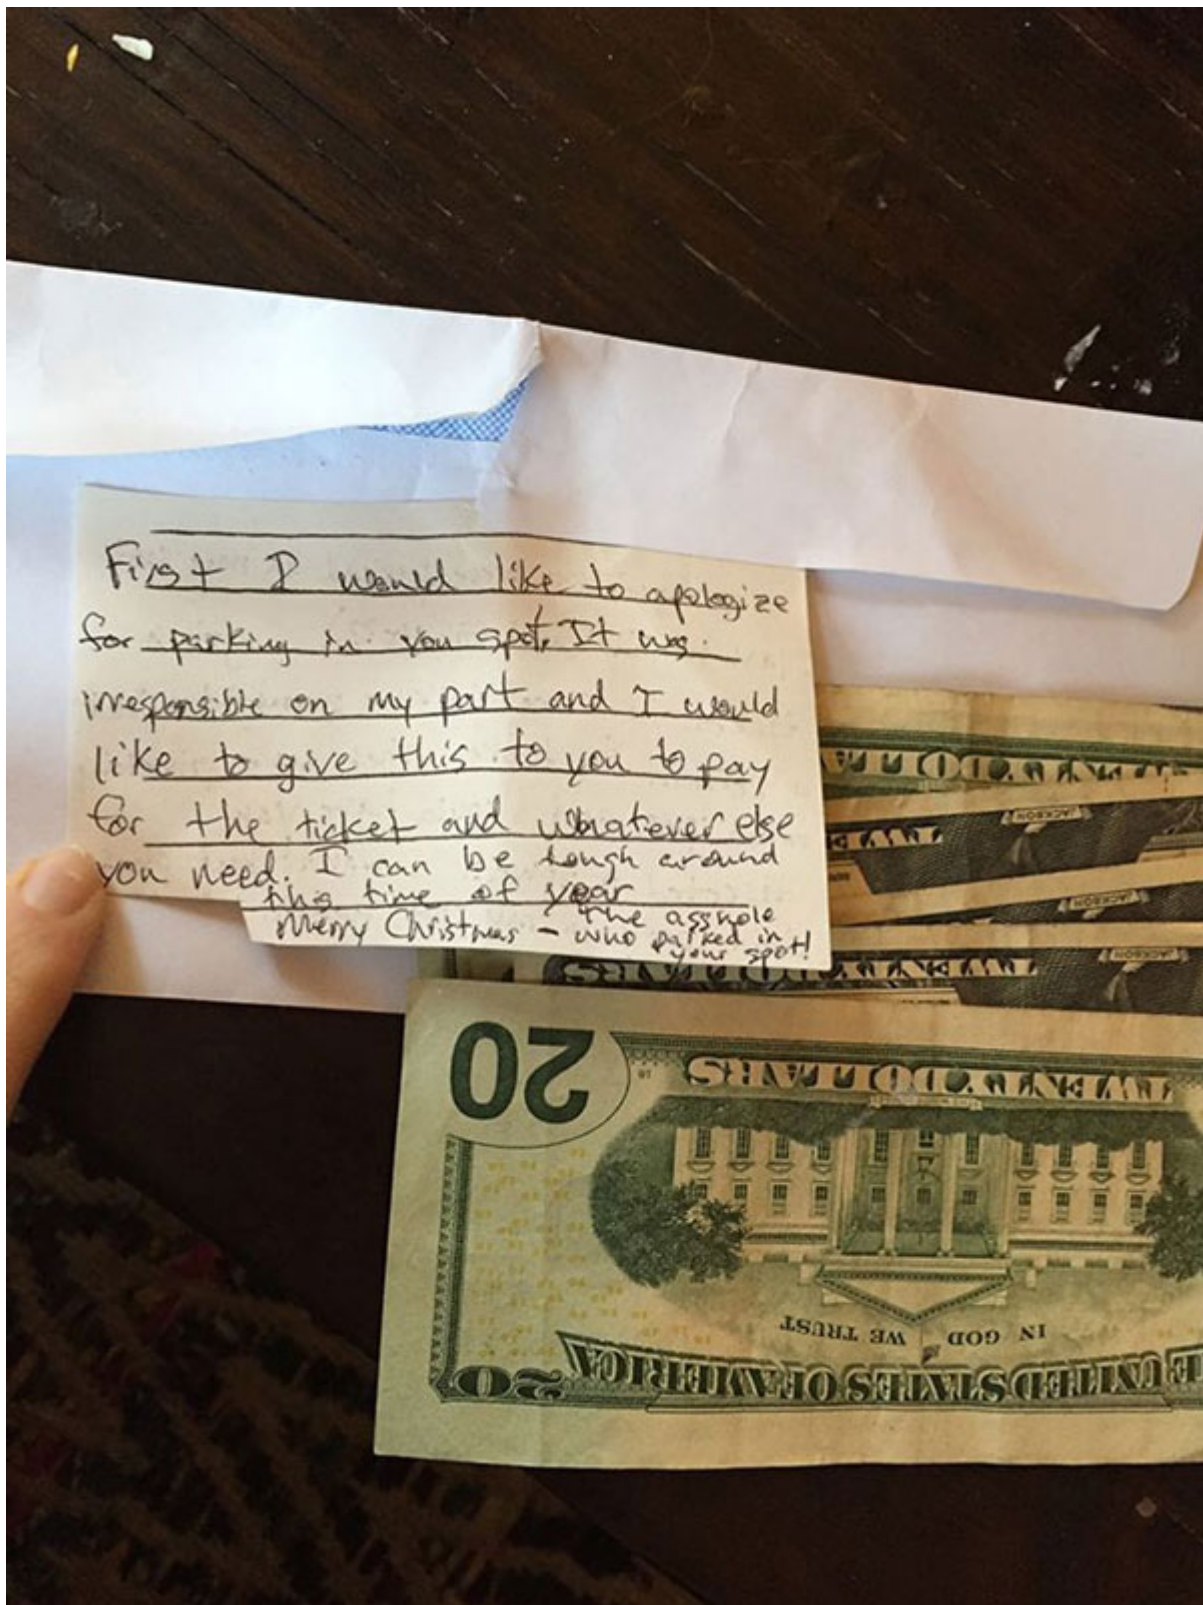 First I would like to apologize
for parking in you spot. It was
irresponsible on my part and I would
like to give this to you to pay
for the ticket and whatever else
you need. I can be tough around
this time of year
Merry Christmas - The asshole
who parked in
your spot!
TWENTY DOLLARS
JACKSON
TWENTY
JACKSON
TWENTY DOLLARS
JACKSON
20
TWENTY DOLLARS
IN GOD WE TRUST
THE UNITED STATES OF AMERICA
20